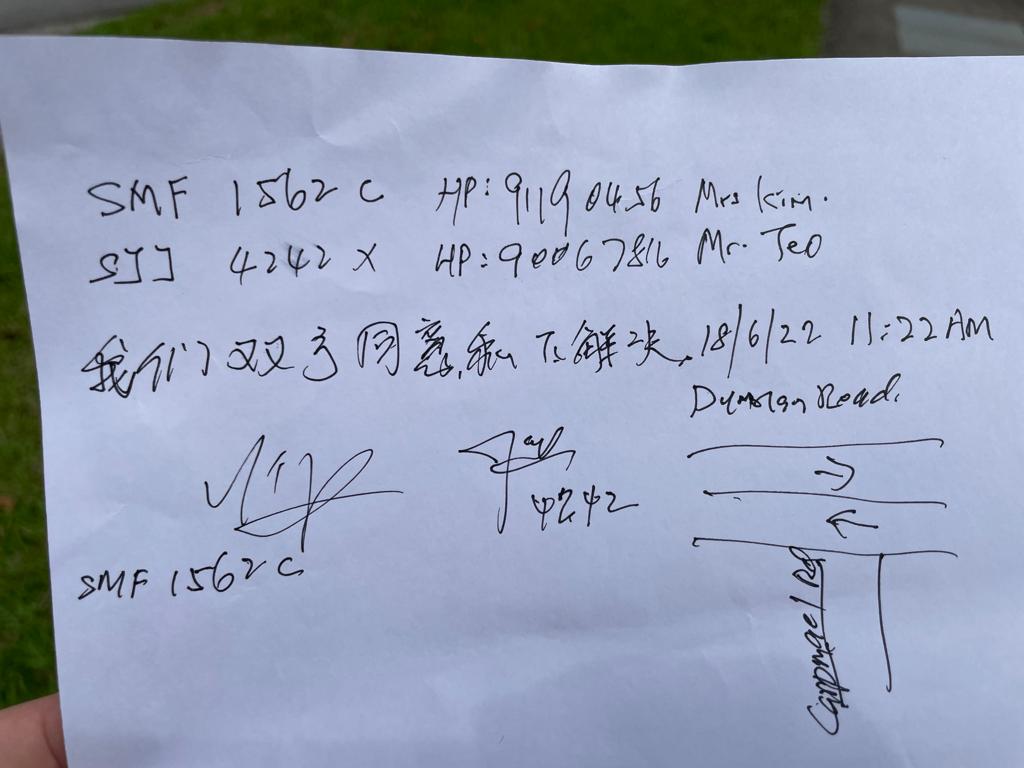 SMF 1562 C HP: 9119 0456 Mrs Kim.
SJJ 4242 X HP: 90067816 Mr. Teo
我们双方同意,私下解决. 18/6/22 11:22 AM
Dunman Road.
4242
SMF 1562 C
Carpmael Rd